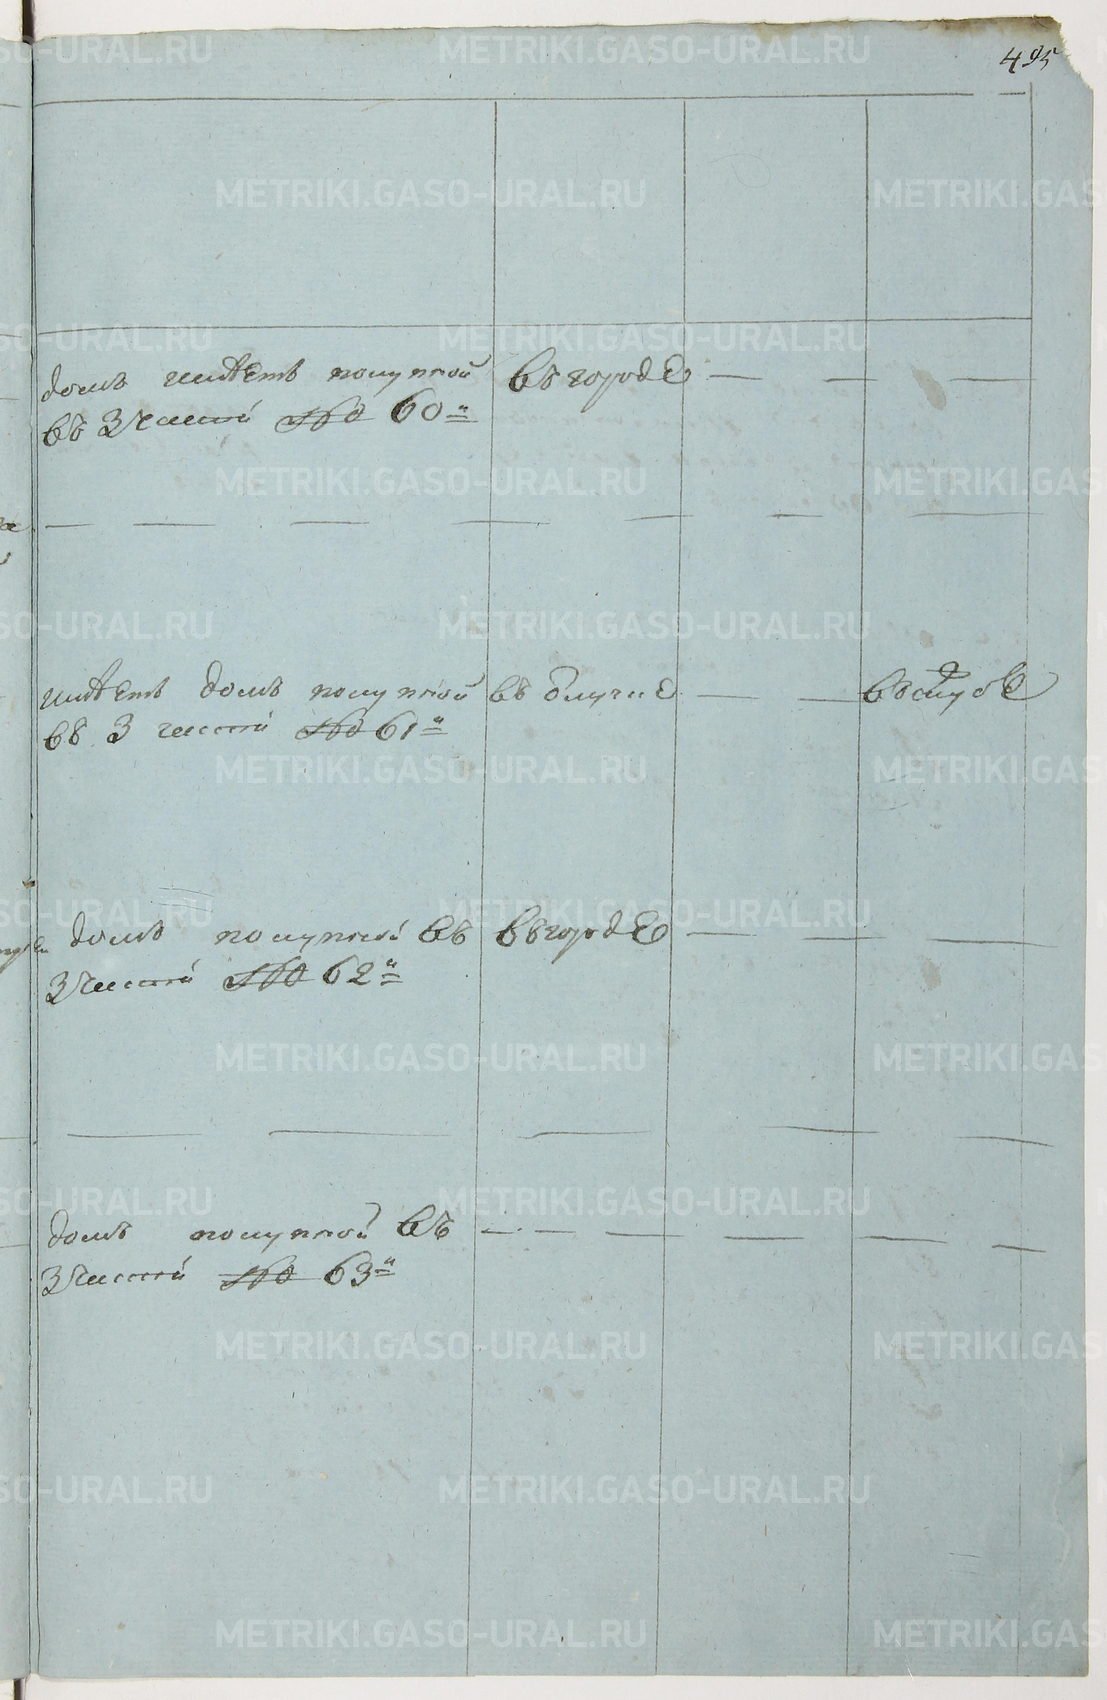 495
домъ имѣетъ покупной въ городѣ
въ 3 части под № 60й
имѣетъ домъ покупной въ отлучкѣ въ службѣ
въ 3 части № 61й
домъ покупной въ въ городѣ
3 части № 62й
домъ покупной въ
3 части № 63й
METRIKI.GASO-URAL.RU